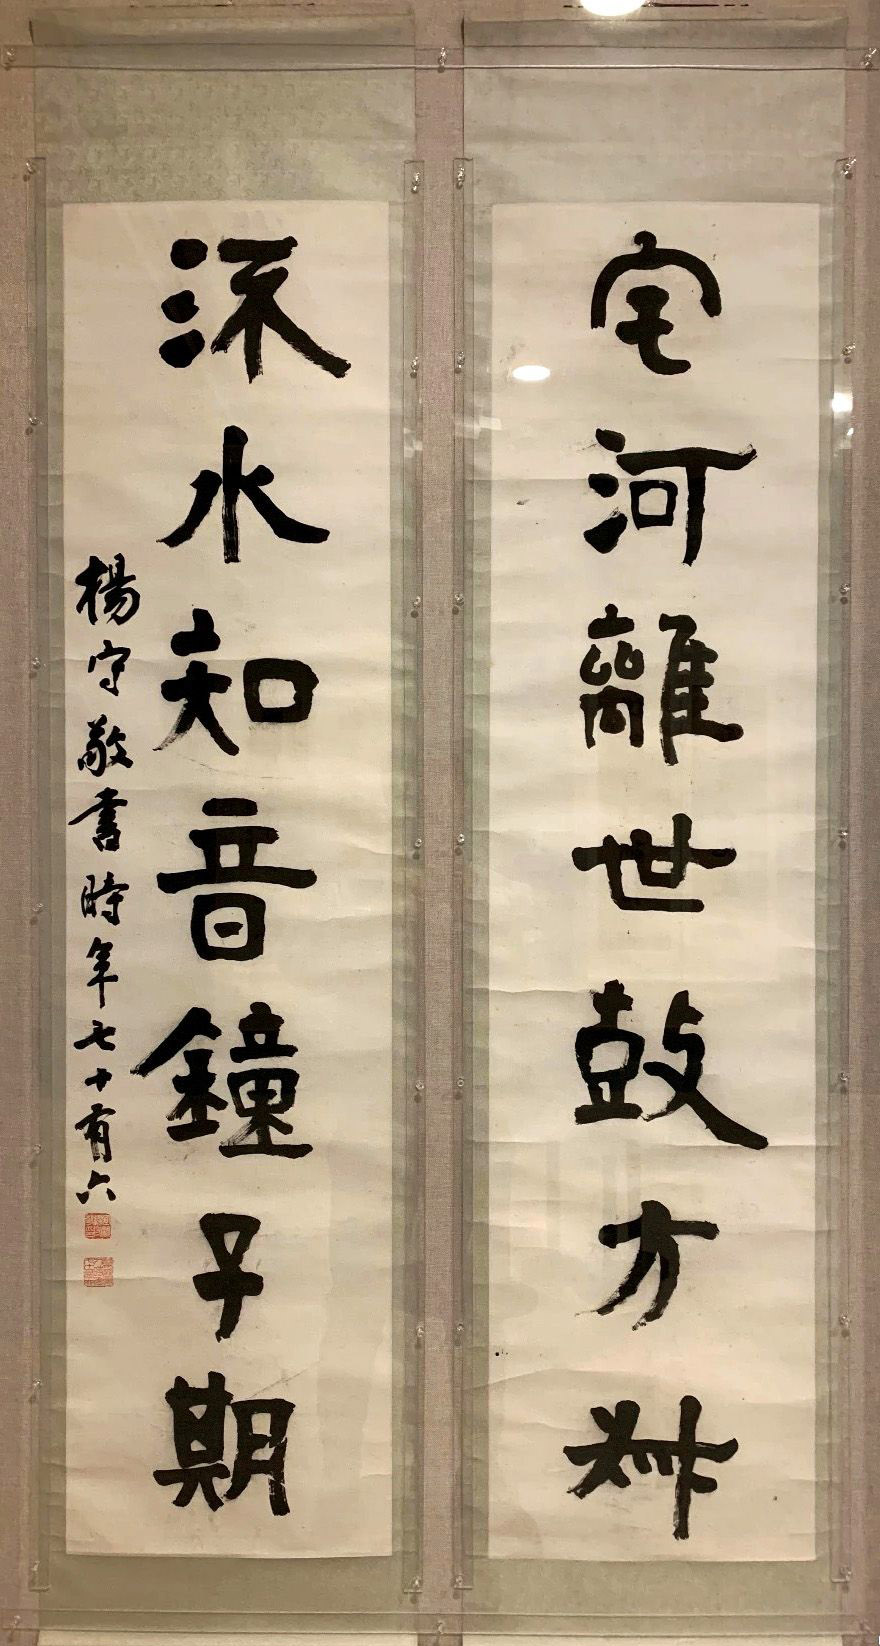 宅河離世鼓方叔
流水知音鐘子期
楊守敬書時年七十有六